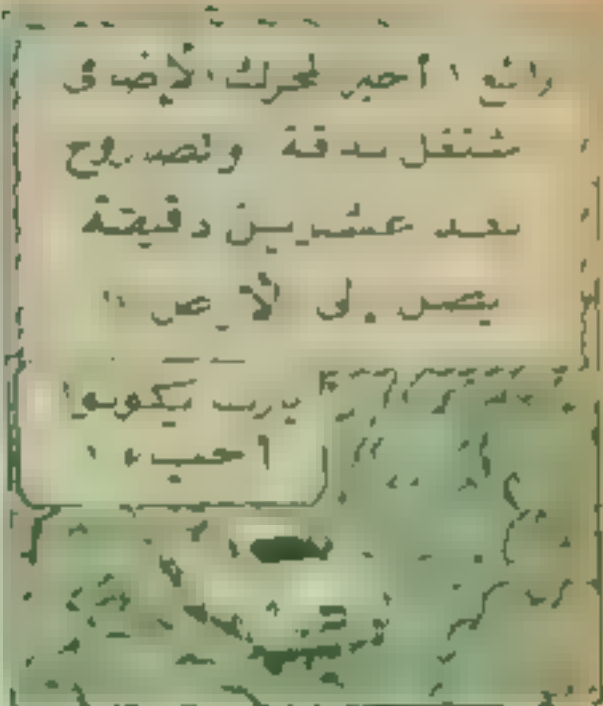 رائع ! أخيراً المحرك الأيضوي
يشتغل بدقة وبصاروخ
بعد عشرين دقيقة
يصل إلى الأرض !!
يا رب يكونوا
أحياء !